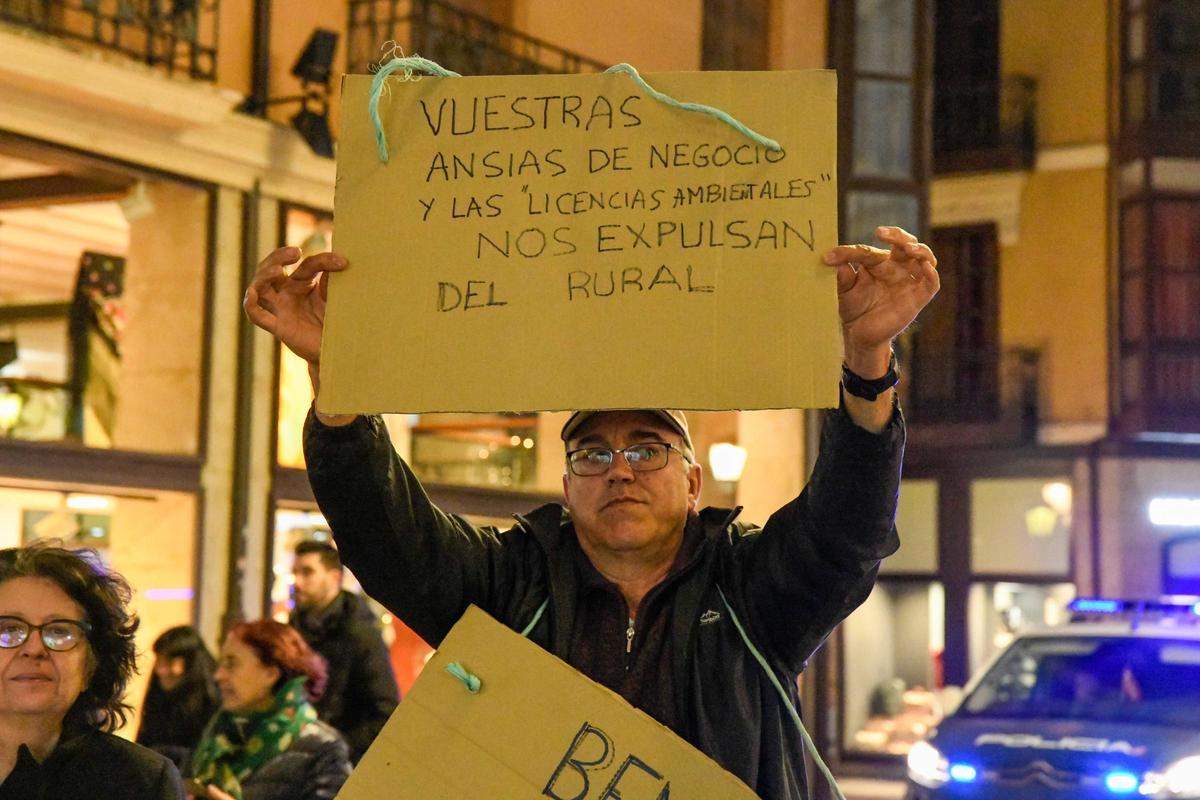 VUESTRAS
ANSIAS DE NEGOCIO
Y LAS "LICENCIAS AMBIENTALES"
NOS EXPULSAN
DEL RURAL
BEN
POLICIA